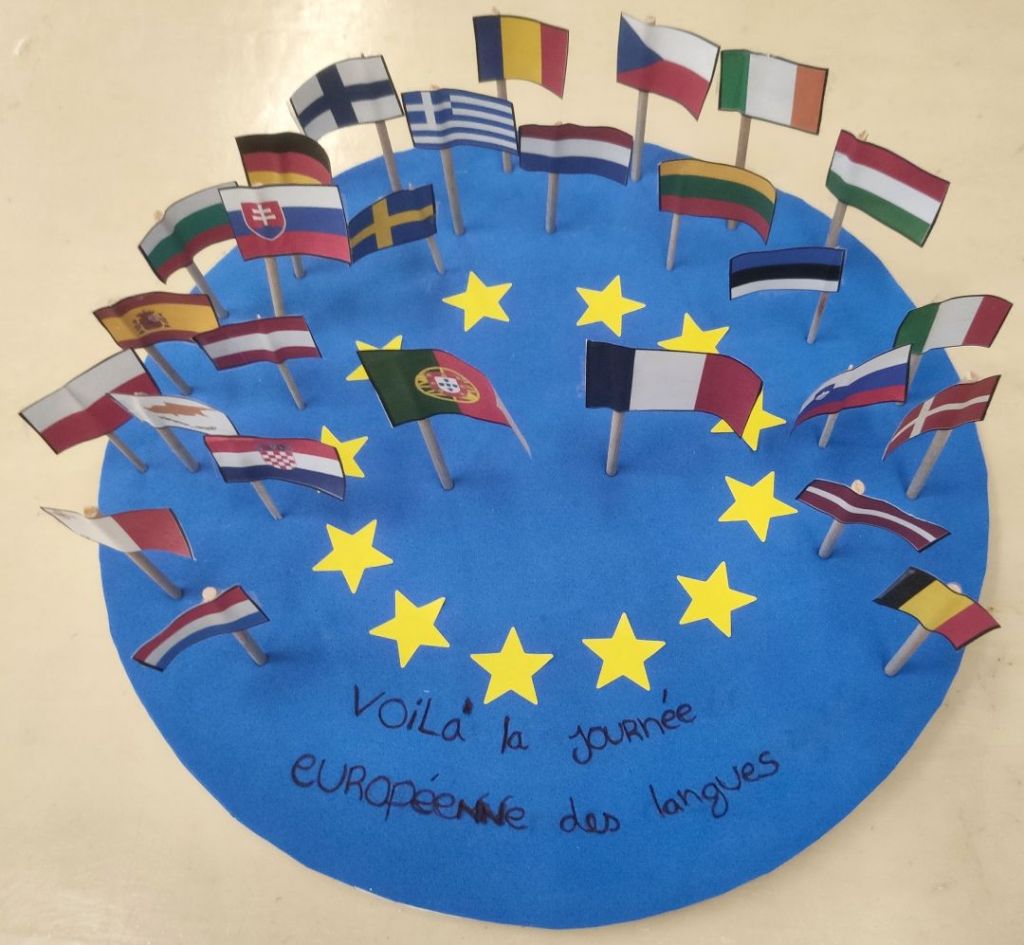 Voilà la journée
européenne des langues